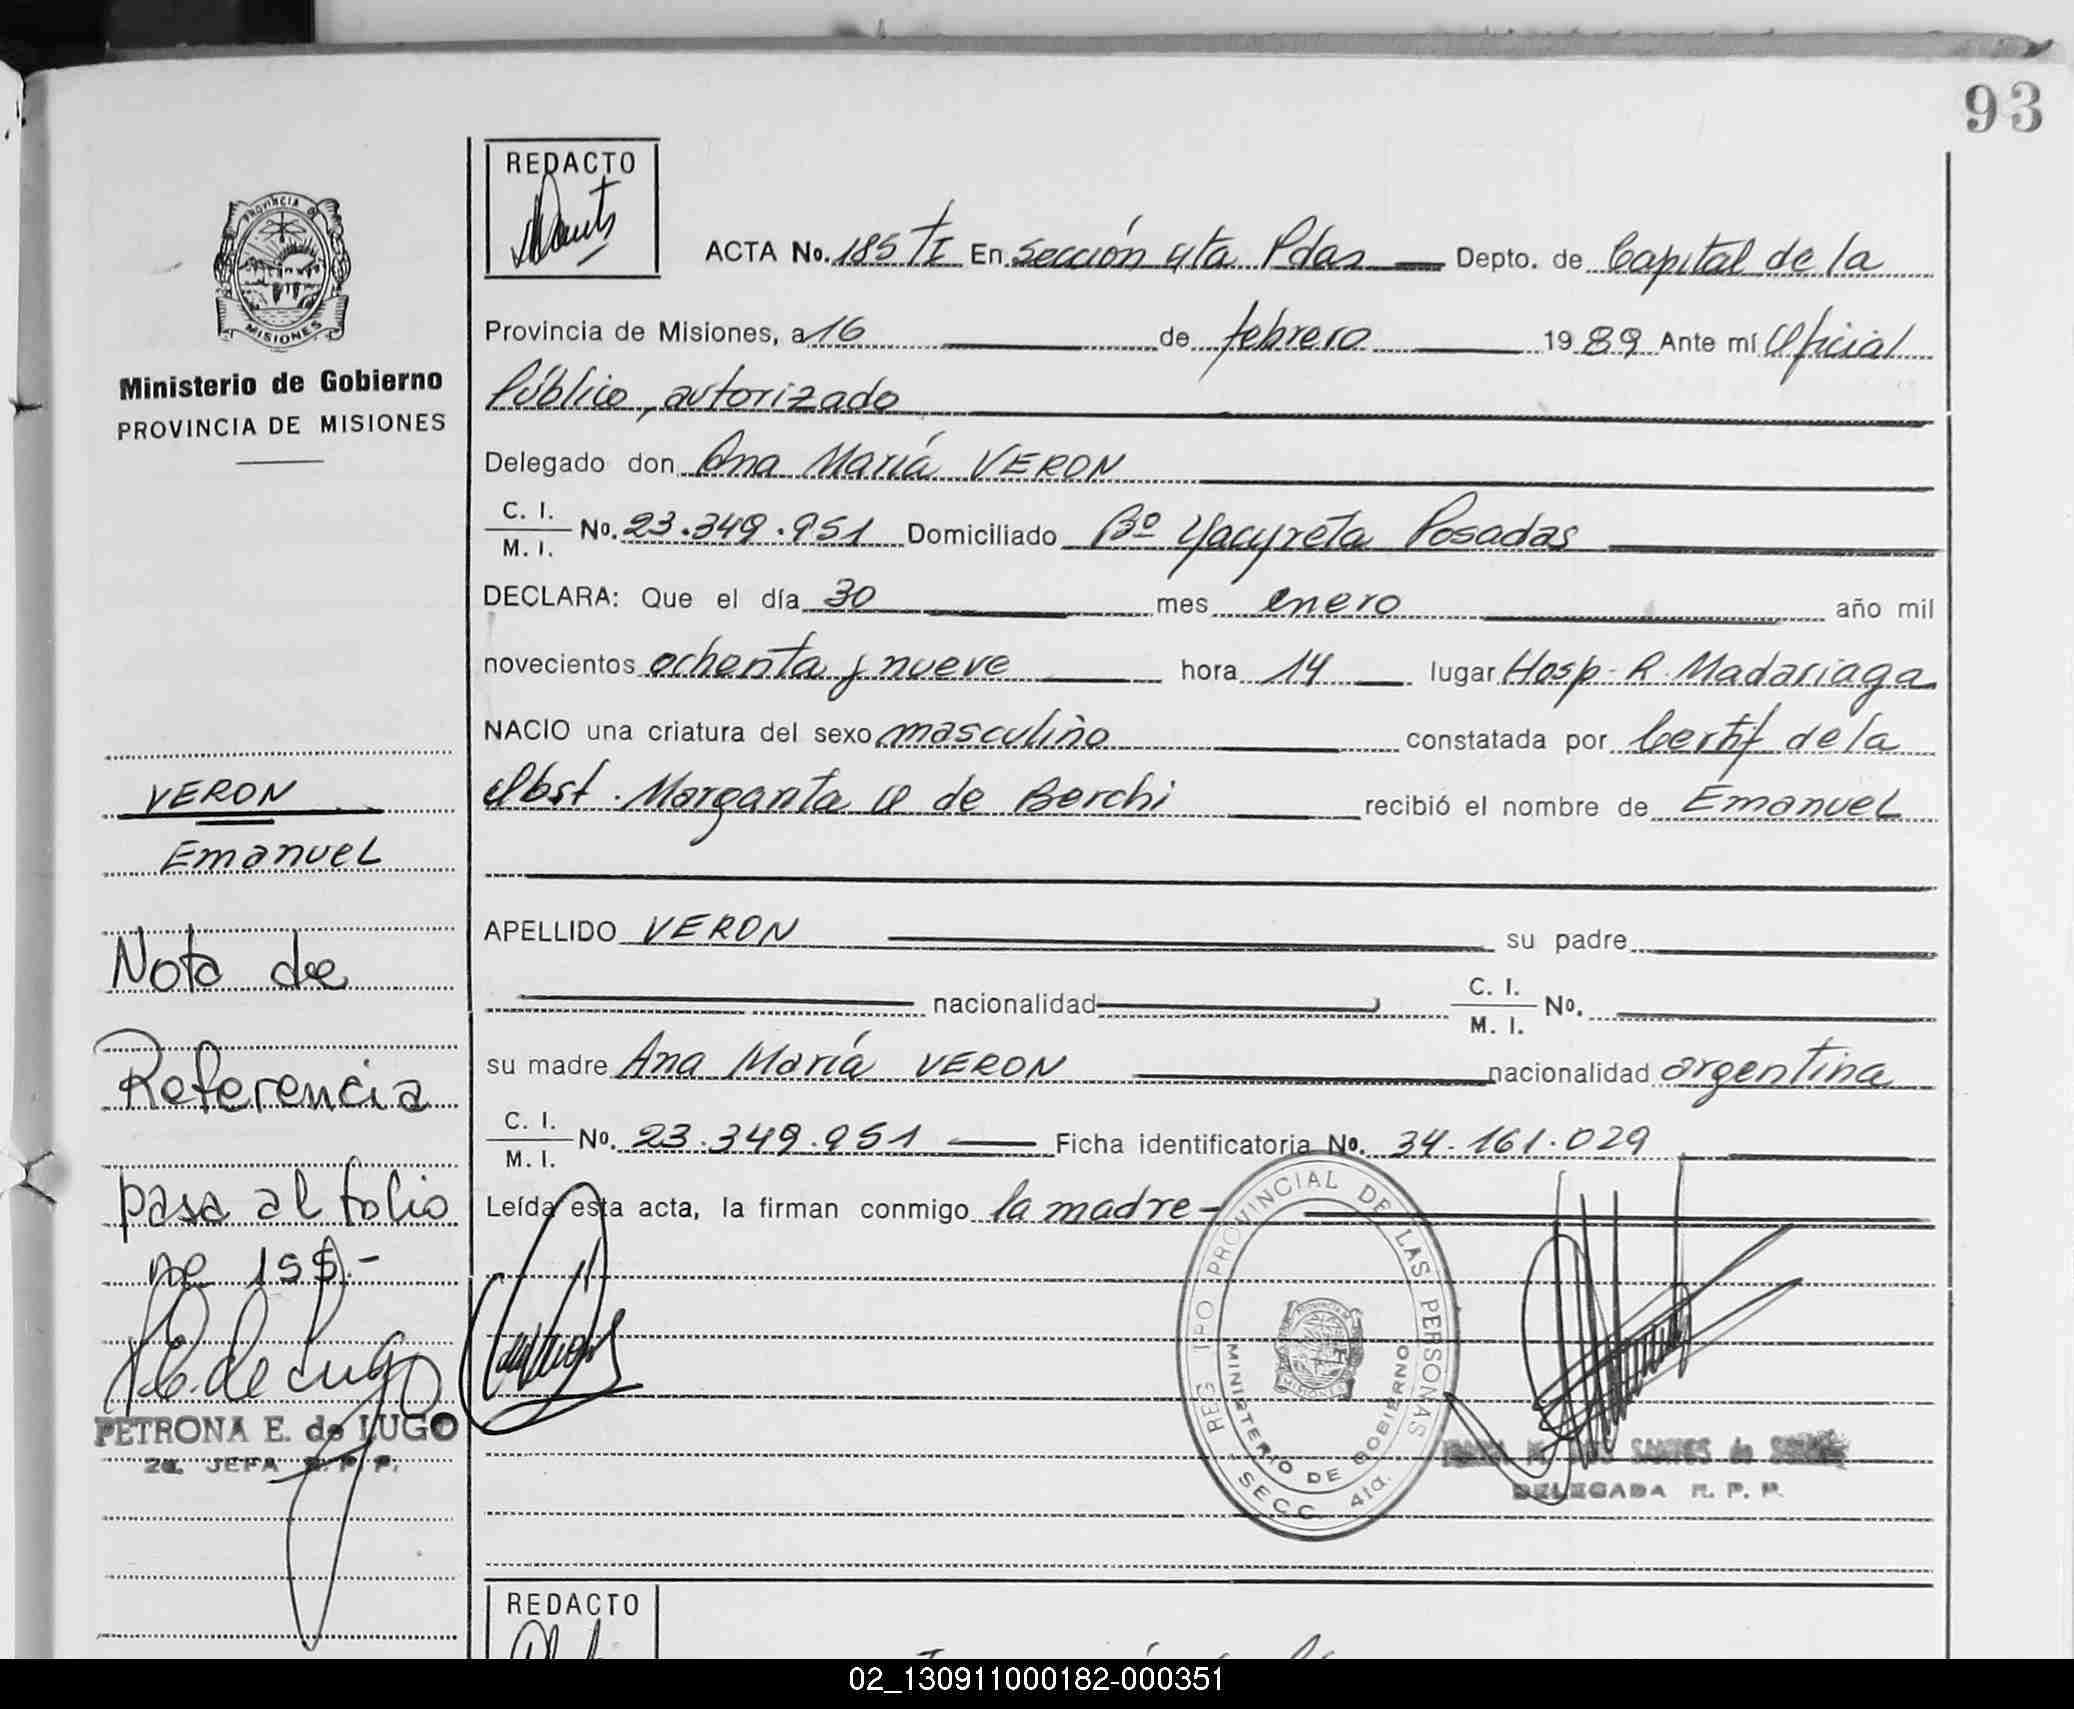 93
REDACTO
ACTA No. 185 TI En Sección 4ta Pdas Depto. de Capital de la
Provincia de Misiones, a 16 de febrero 1989 Ante mí Oficial
Público, autorizado
Delegado don Ana María VERON
C. I. / M. I. No. 23.349.951 Domiciliado Bº Yacyreta Posadas
DECLARA: Que el día 30 mes enero año mil
novecientos ochenta y nueve hora 14 lugar Hosp. R. Madariaga
NACIO una criatura del sexo masculino constatada por Certif de la
Obst. Margarita de Borchi recibió el nombre de Emanuel
APELLIDO VERON su padre
nacionalidad C. I. / M. I. No.
su madre Ana María VERON nacionalidad argentina
C. I. / M. I. No. 23.349.951 Ficha identificatoria No. 34.161.029
Leída esta acta, la firman conmigo la madre-
PROVINCIA DE
MISIONES
Ministerio de Gobierno
PROVINCIA DE MISIONES
VERON
Emanuel
Nota de
Referencia
pasa al folio
P.E. de Lugo
PETRONA E. de LUGO
2a. JEFA R. P. P.
REG TPO PROVINCIAL DE LAS PERSONAS
MINISTERIO DE GOBIERNO
SECC 4ta.
MISIONES
SANTOS de
DELEGADA R. P. P.
REDACTO
02_130911000182-000351